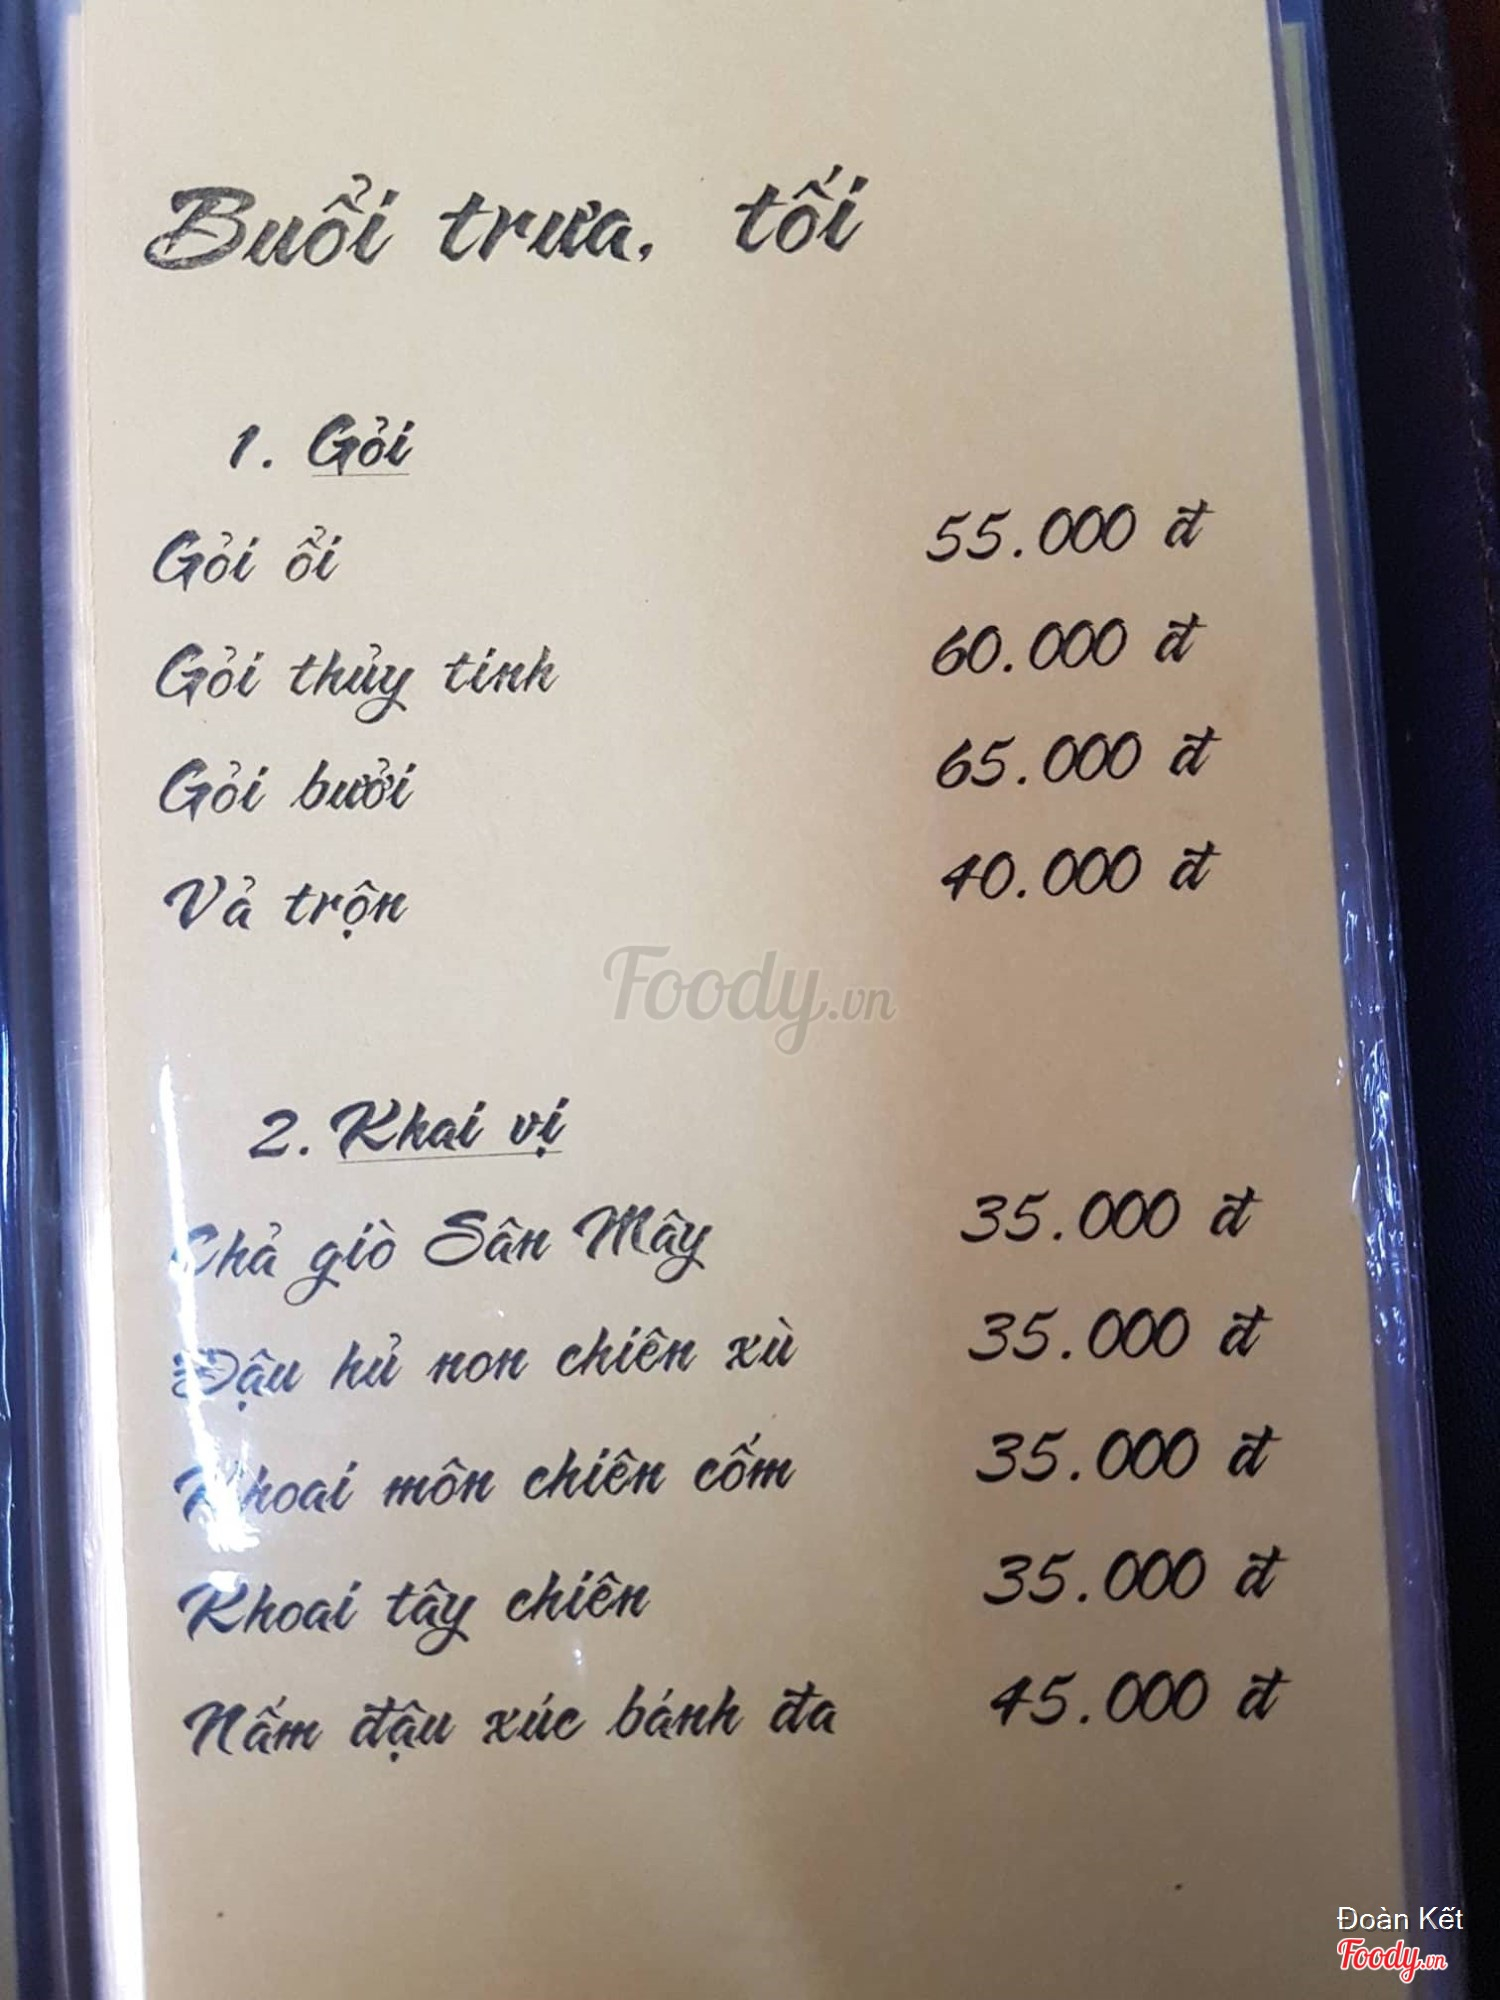 Buổi trưa, tối
1. Gỏi
Gỏi ổi 55.000 đ
Gỏi thủy tinh 60.000 đ
Gỏi bưởi 65.000 đ
Vả trộn 40.000 đ
Foody.vn
2. Khai vị
Chả giò Sân Mây 35.000 đ
Đậu hủ non chiên xù 35.000 đ
Khoai môn chiên cốm 35.000 đ
Khoai tây chiên 35.000 đ
Nấm đậu xúc bánh đa 45.000 đ
Đoàn Kết
Foody.vn